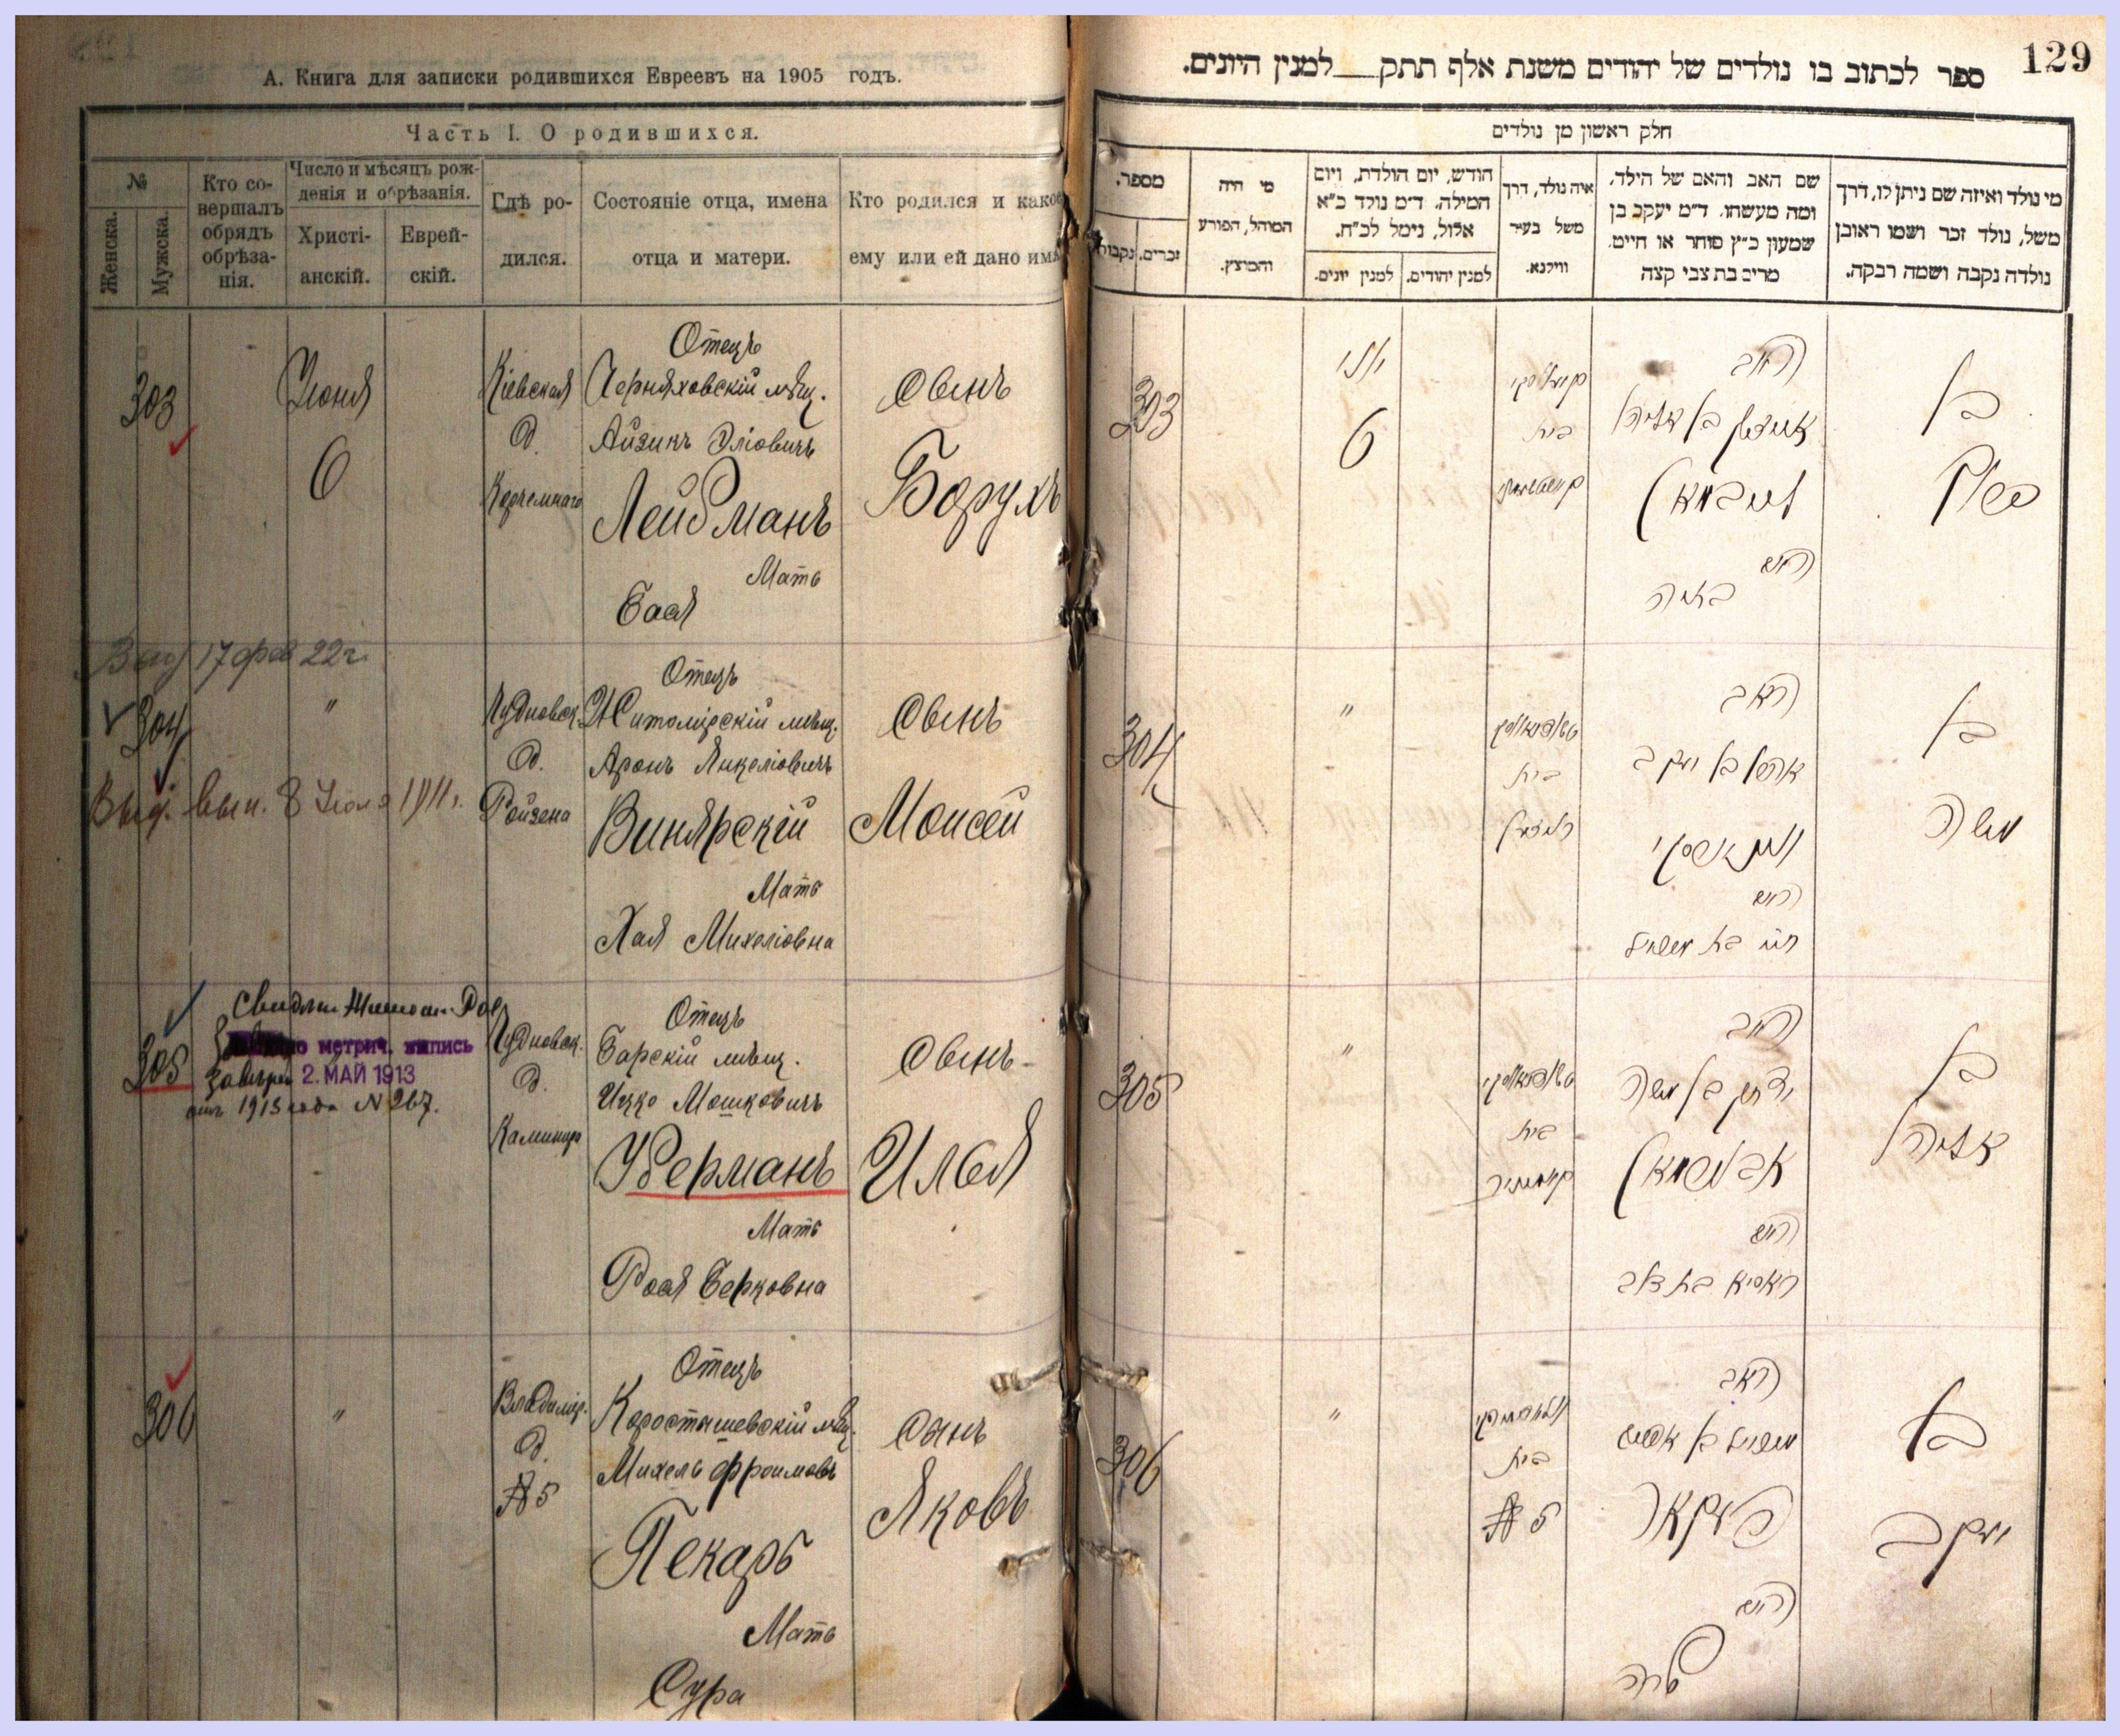 А. Книга для записки родившихся Евреевъ на 1905 годъ.
Часть I. О родившихся.
№
Женска.
Мужска.
Кто со-
вершалъ
обрядъ
обрѣза-
нія.
Число и мѣсяцъ рож-
денія и обрѣзанія.
Христі-
анскій.
Еврей-
скій.
Гдѣ ро-
дился.
Состояніе отца, имена
отца и матери.
Кто родился и какое
ему или ей дано имя
303
Июня
6
Кіевская
д.
Отецъ
Черняховскій мѣщ.
Айзикъ Эліовичъ
Лейбманъ
Мать
Бася
Сынъ
Борухъ
17 фев 22 г.
304
"
Выд. вып. 8 1911 г.
Чудновск.
д.
Ройзена
Отецъ
Житомірскій мѣщ.
Аронъ Янкеліовичъ
Винярскій
Мать
Хая Михеліовна
Сынъ
Моисей
305
метрич. выпись
2. МАЙ 1913
1913 года № 267.
Чудновск.
д.
Отецъ
Барскій мѣщ.
Ицко Мошковичъ
Уберманъ
Мать
Рося Берковна
Сынъ
Илья
306
"
Владимір.
д.
№ 5
Отецъ
Коростышевскій мѣщ.
Михель Фроимовъ
Пекарь
Мать
Сура
Сынъ
Яковъ
129
ספר לכתוב בו נולדים של יהודים משנת אלף תתק__למנין היונים.
חלק ראשון מן נולדים
מספר.
זכרים.
נקבות
מי היה
המוהל, הפורע
והמוצץ.
חודש, יום הולדת, ויום
המילה. ד״מ נולד כ״א
אלול, נימל לכ״ח.
למנין יונים.
למנין יהודים.
איה נולד, דרך
משל בעיר
ווילנא.
שם האב והאם של הילד,
ומה מעשהו. ד״מ יעקב בן
שמעון כ״ץ סוחר או חייט.
מרים בת צבי קצה
מי נולד ואיזה שם ניתן לו, דרך
משל, נולד זכר ושמו ראובן
נולדה נקבה ושמה רבקה.
303
יוני
6
בית
האב
אייזיק בן אליהו
לייבמאן
האם
באסיה
בן
ברוך
304
"
בית
האב
אהרן בן יעקב
וויניארסקי
האם
חיה בת מיכל
בן
משה
305
"
בית
האב
יצחק בן משה
האם
בן
אליהו
306
"
בית
№ 5
האב
פעקאר
האם
שרה
בן
יעקב